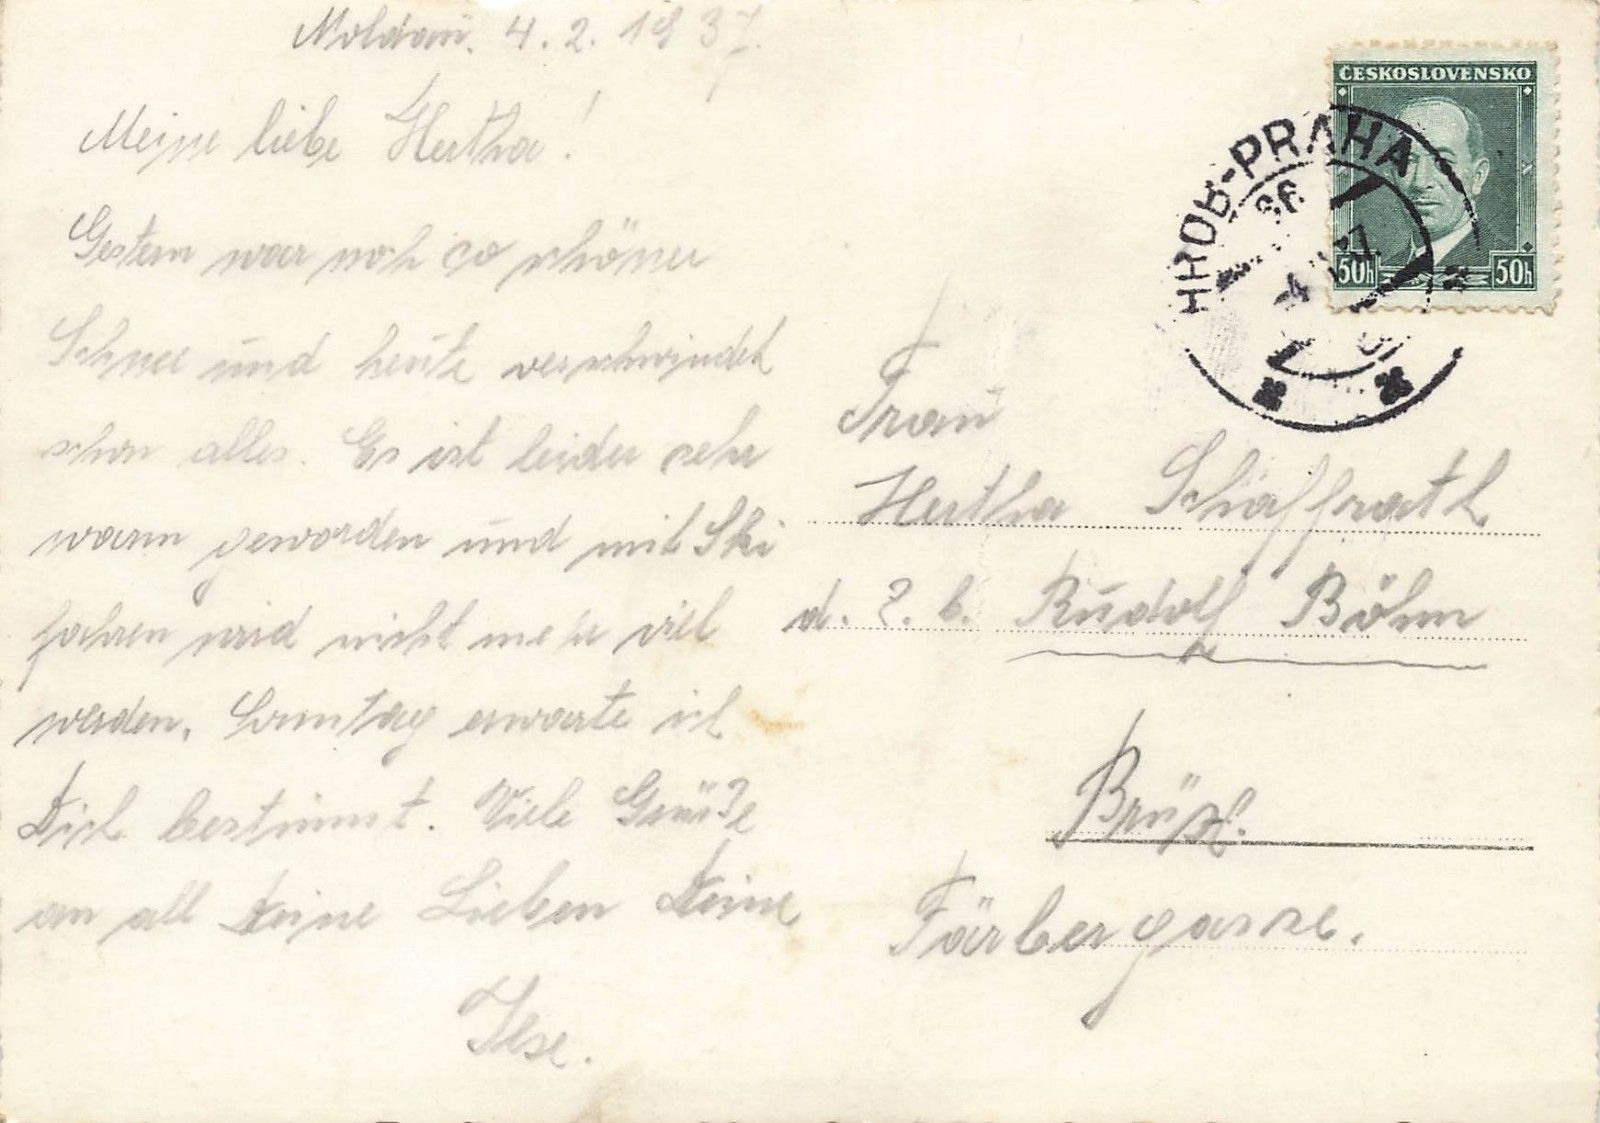 Moldau. 4. 2. 1937.
Meine liebe Hertha!
Gestern war noch so schöner
Schnee und heute verschwindet
schon alles. Es ist leider sehr
warm geworden und mit Ski
fahren wird nicht mehr viel
werden. Sonntag erwarte ich
Dich bestimmt. Viele Grüße
an all Deine Lieben Deine
Ilse.
ČESKOSLOVENSKO
50h 50h
HROB-PRAHA
Frau
Hertha Schaffrath
d. Z. b. Rudolf Böhm
Brüx.
Färbergasse.